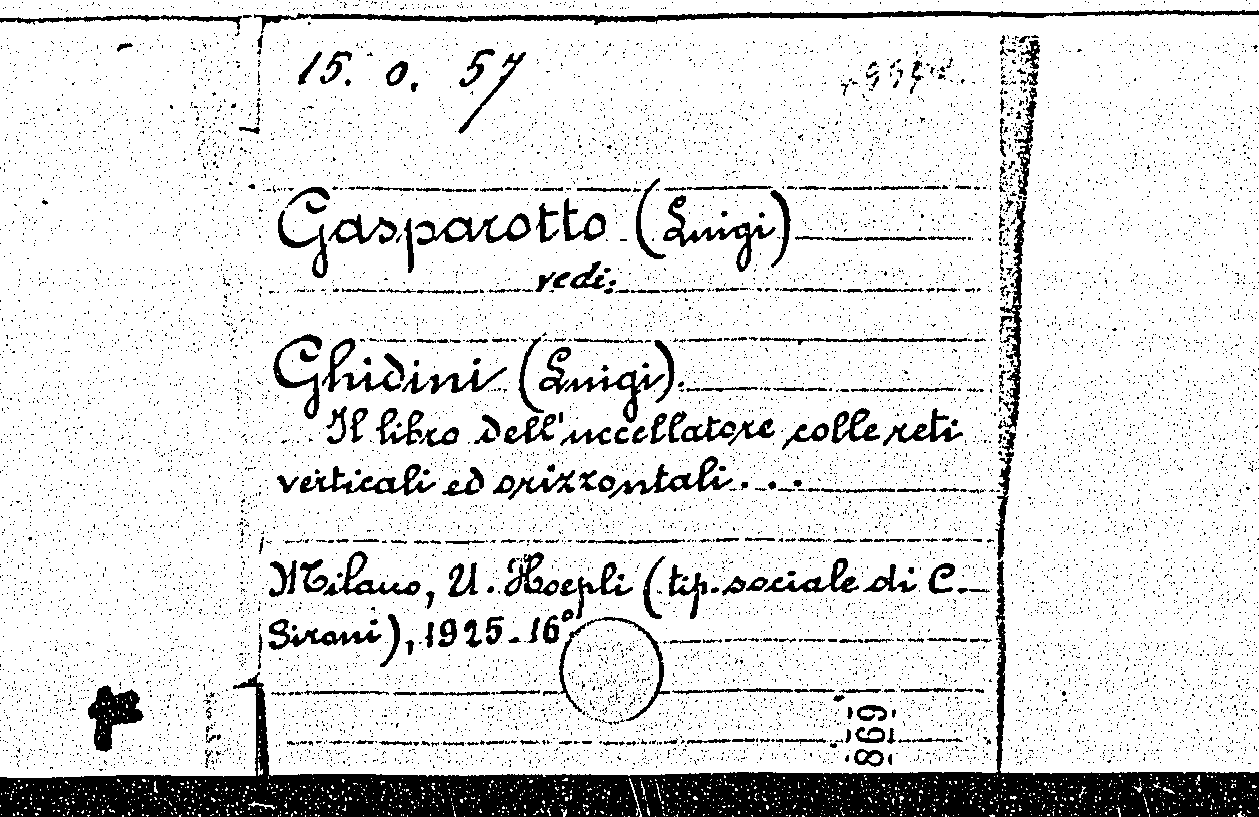 15. O. 57
Gasparotto (Luigi)
vedi:
Ghidini (Luigi).
Il libro dell'uccellatore colle reti
verticali ed orizzontali...
Milano, U. Hoepli (tip. sociale di C.
Sironi), 1925-16°
869